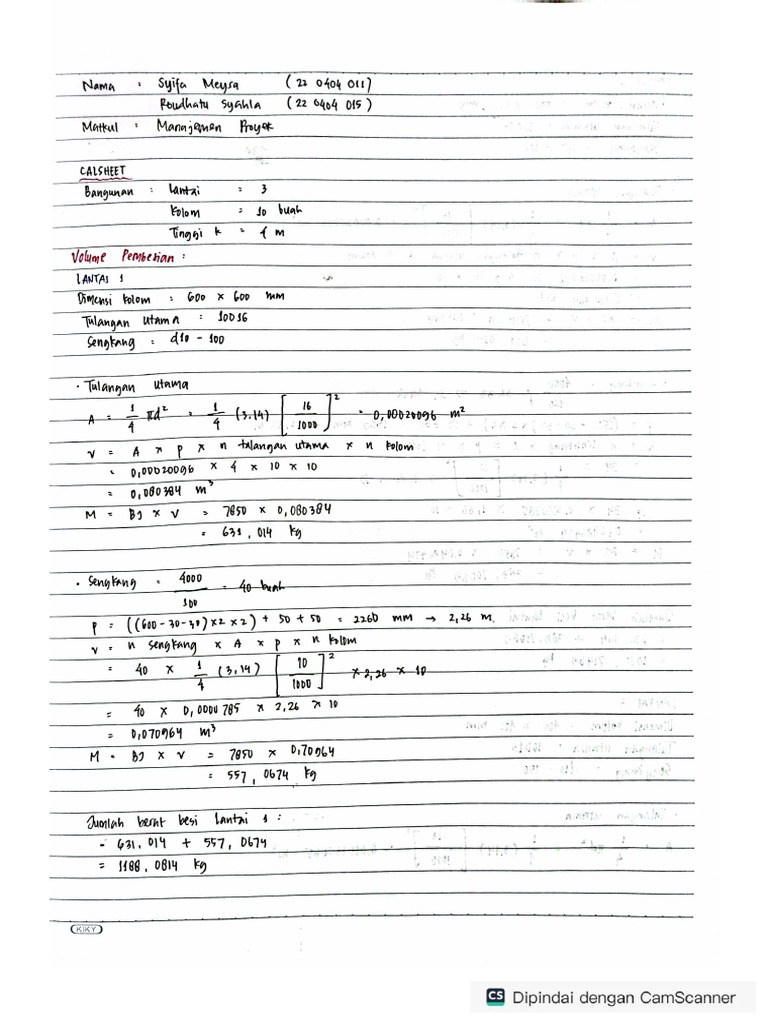 Nama : Syifa Meysa (22 0404 011)
Roudhatu Syahla (22 0404 015)
Matkul : Manajemen Proyek
CALSHEET
Bangunan : Lantai : 3
Kolom : 10 buah
Tinggi k : 4 m
Volume Pembesian :
LANTAI 1
Dimensi kolom : 600 x 600 mm
Tulangan utama : 10D16
Sengkang : d10 - 100
• Tulangan utama
A = 1/4 πd² = 1/4 (3.14) [16/1000]² = 0,00020096 m²
V = A x P x n tulangan utama x n kolom
= 0,00020096 x 4 x 10 x 10
= 0,080384 m³
M = BJ x V = 7850 x 0,080384
= 631,014 kg
• Sengkang = 4000/100 = 40 buah
P = ((600-30-30)x2x2) + 50 + 50 = 2260 mm → 2,26 m.
V = n sengkang x A x P x n kolom
= 40 x 1/4 (3.14) [10/1000]² x 2,26 x 10
= 40 x 0,0000785 x 2,26 x 10
= 0,070964 m³
M = BJ x V = 7850 x 0,70964
= 557,0674 kg
Jumlah berat besi lantai 1 :
= 631,014 + 557,0674
= 1188,0814 kg
KIKY
CS Dipindai dengan CamScanner